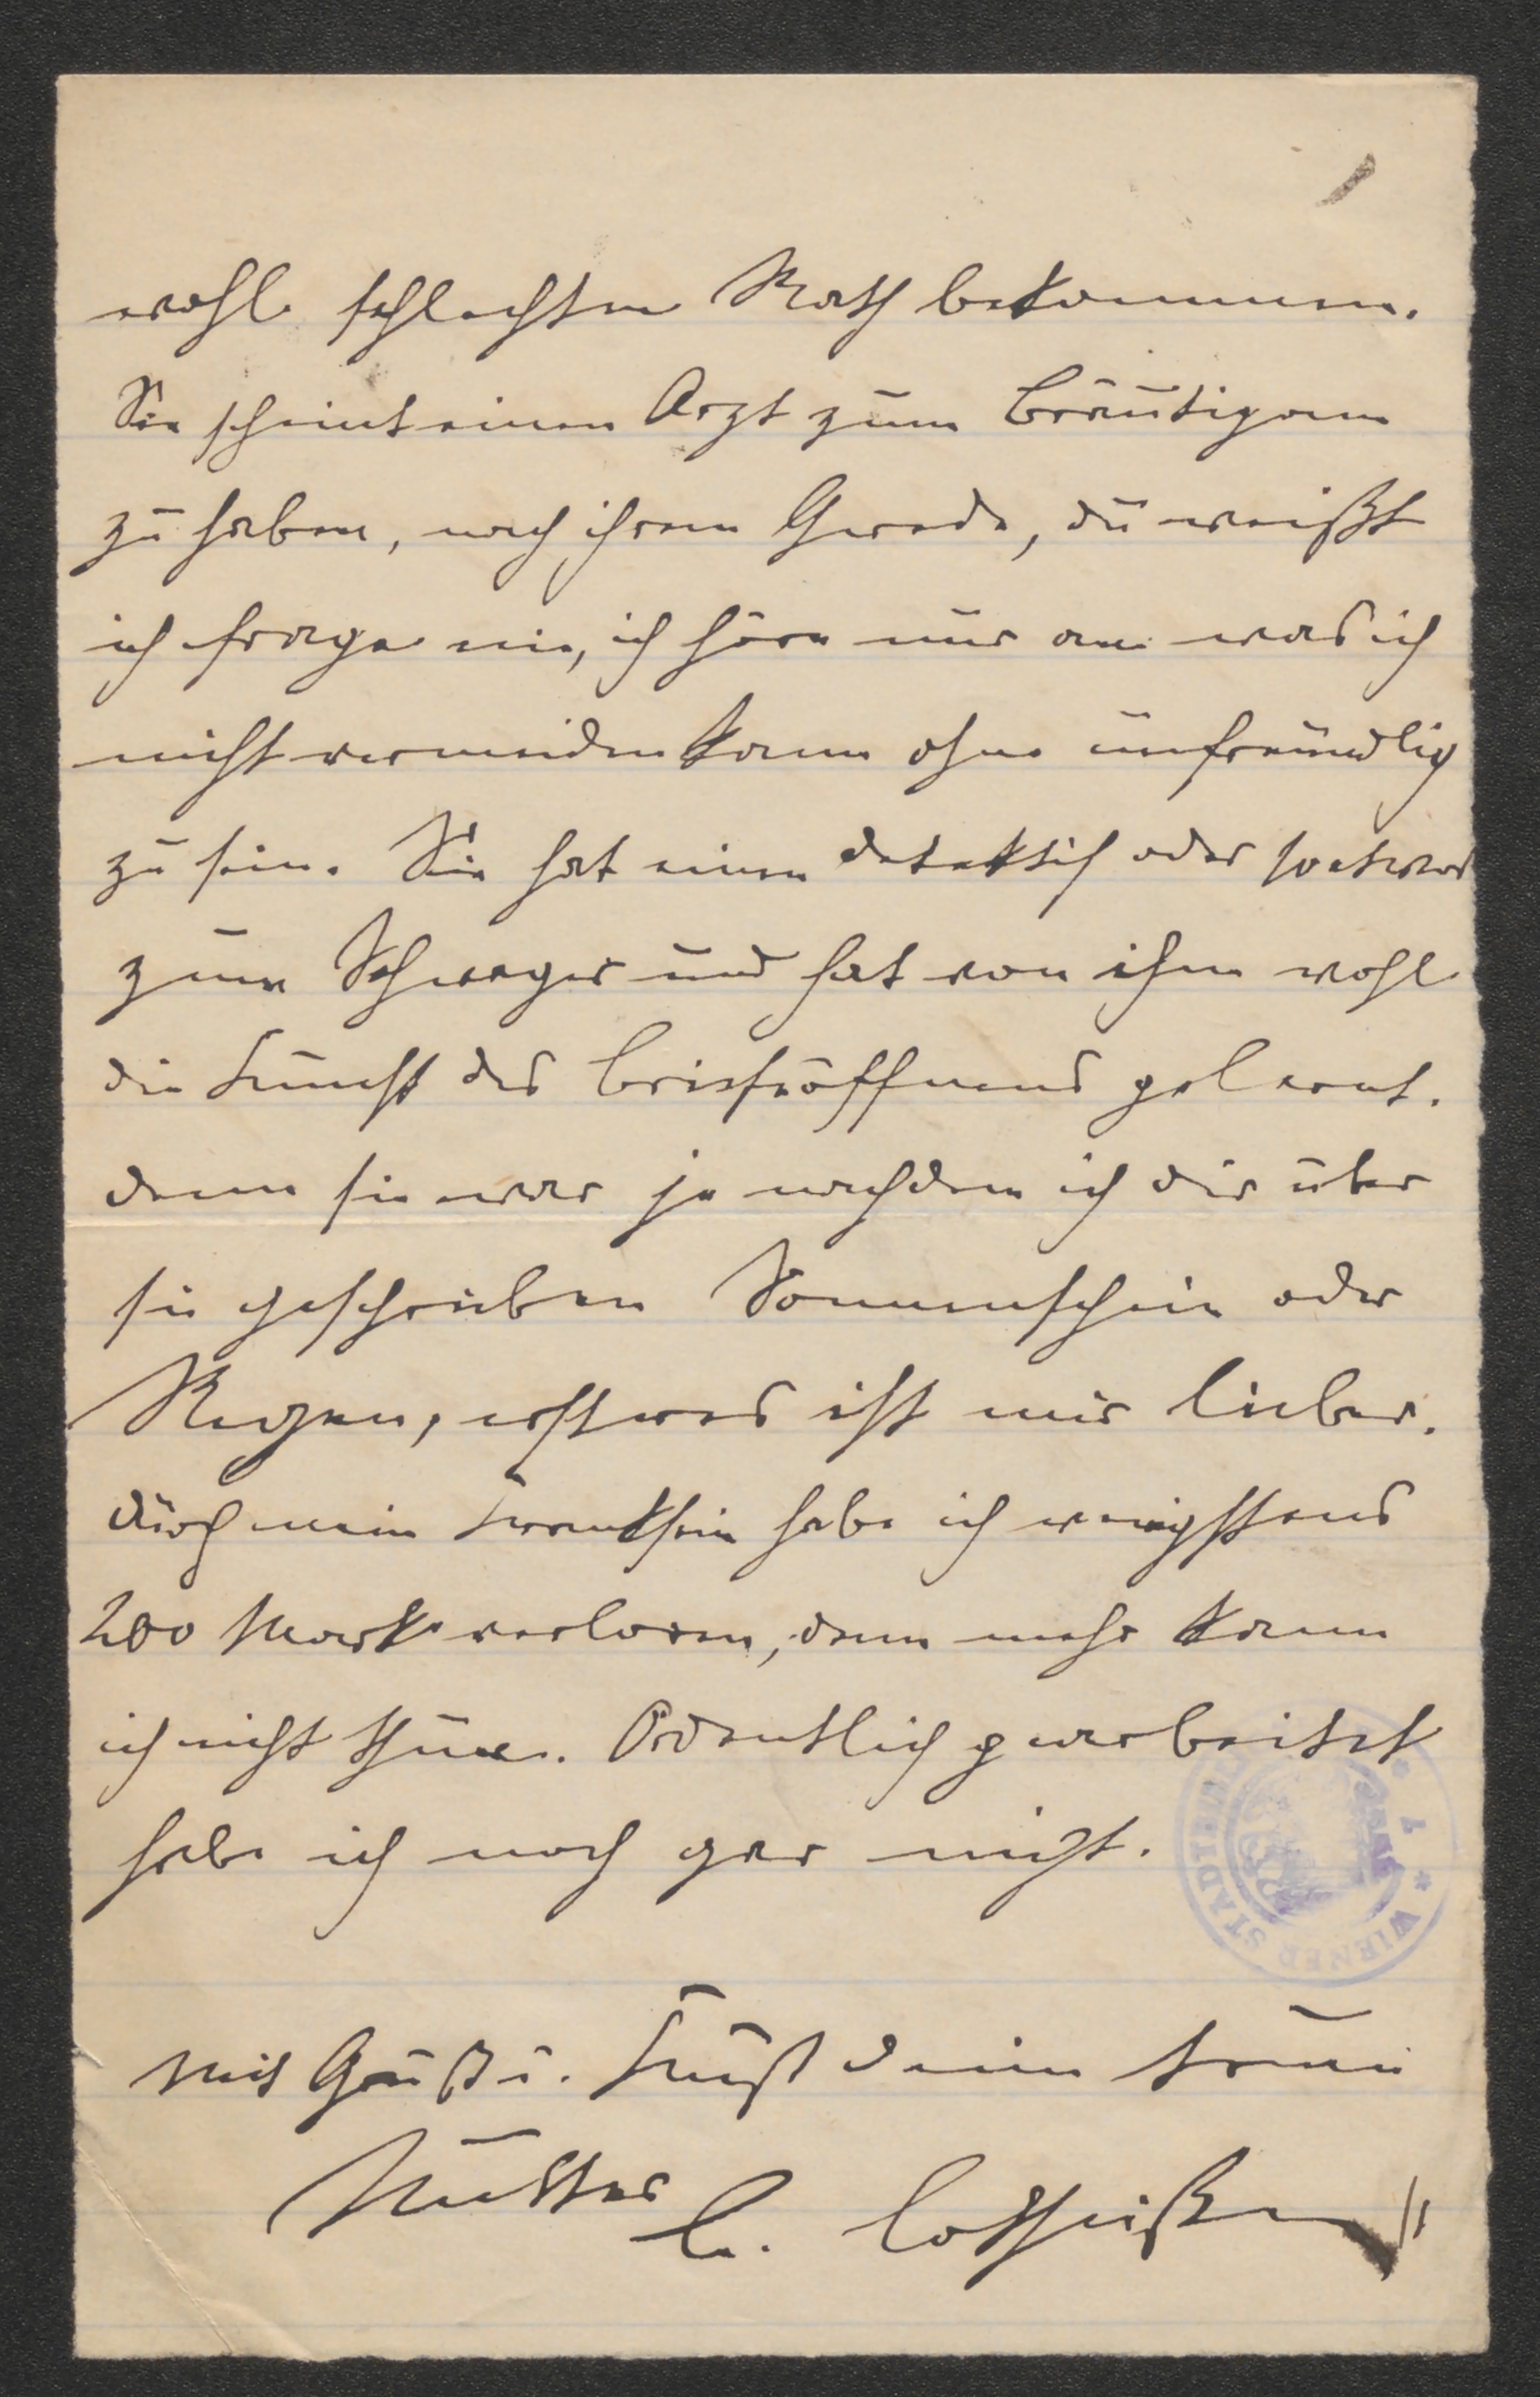 wohl schlechten Rath bekommen.
Sie scheint einen Arzt zum Bräutigam
zu haben, nach ihrem Gerede, du weißt
ich frage nie, ich höre nur an was ich
nicht vermeiden kann ohne unfreundlig
zu sein. Sie hat einen detektif oder soetwas
zum Schwager und hat von ihm wohl
die Kunst des Briefeöffnens gelernt.
denn sie war je nachdem ich dir über
sie geschrieben Sonnenschein oder
Regen, erstres ist mir lieber.
durch mein Kranksein habe ich wenigstens
200 Mark verloren, denn mehr kann
ich nicht thun. Ordentlich gearbeitet
habe ich noch gar nicht.
Mit Gruß u. Kuß deine treue
Mutter L. Lotheißen
WIENER STADTBIBL